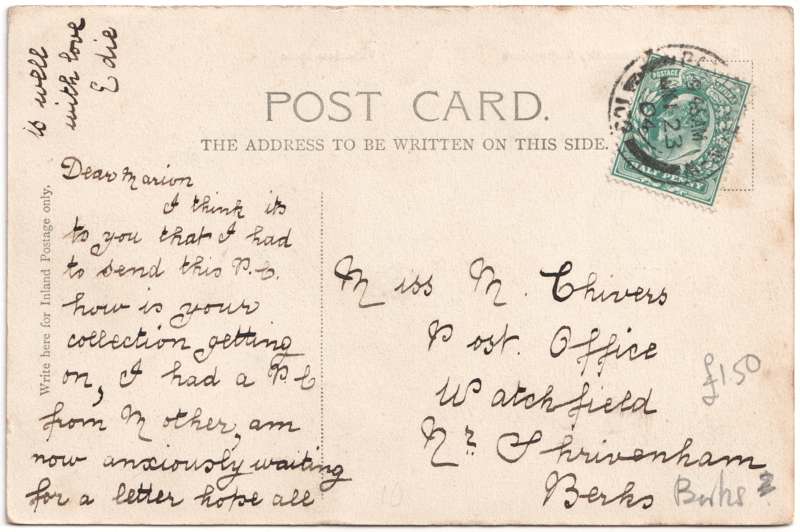 POST CARD.
THE ADDRESS TO BE WRITTEN ON THIS SIDE.
Write here for Inland Postage only.
Dear Marion
I think its
to you that I had
to send this P.C.
how is your
collection getting
on, I had a P.C
from Mother, am
now anxiously waiting
for a letter hope all
is well
with love
Edie
Miss M. Chivers
Post. Office
Watchfield
Nr Shrivenham
Berks
Berks
£1.50
POSTAGE
HALF PENNY
23
04